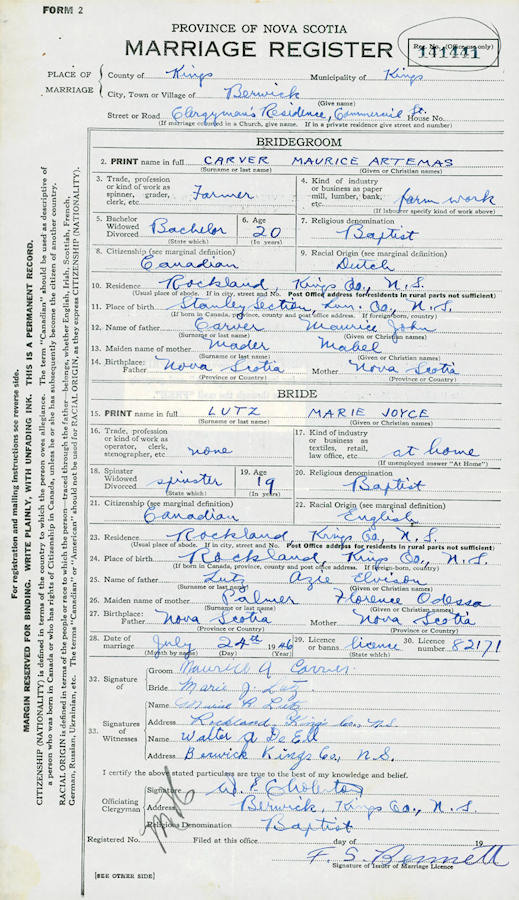 FORM 2
PROVINCE OF NOVA SCOTIA
MARRIAGE REGISTER
Reg. No. (Office use only)
141441
PLACE OF MARRIAGE
County of Kings Municipality of Kings
City, Town or Village of Berwick
(Give name)
Street or Road Clergyman's Residence, Commercial St. House No.
(If marriage occurred in a Church, give name. If in a private residence give street and number)
BRIDEGROOM
2. PRINT name in full CARVER MAURICE ARTEMAS
(Surname or last name) (Given or Christian names)
3. Trade, profession or kind of work as spinner, grader, clerk, etc. Farmer
4. Kind of industry or business as paper mill, lumber, bank, etc. farm work
(If labourer specify kind of work above)
5. Bachelor Widowed Divorced Bachelor
(State which)
6. Age 20
(In years)
7. Religious denomination Baptist
8. Citizenship (see marginal definition) Canadian
9. Racial Origin (see marginal definition) Dutch
10. Residence Rockland, Kings Co., N.S.
(Usual place of abode. If in city, street and No. Post Office address for residents in rural parts not sufficient)
11. Place of birth Stanley Section Lun. Co., N.S.
(If born in Canada, province, county and post office address. If foreign-born, country)
12. Name of father Carver Maurice John
(Surname or last name) (Given or Christian names)
13. Maiden name of mother Mader Mabel
(Surname or last name) (Given or Christian names)
14. Birthplace: Father Nova Scotia Mother Nova Scotia
(Province or Country) (Province or Country)
BRIDE
15. PRINT name in full LUTZ MARIE JOYCE
(Surname or last name) (Given or Christian names)
16. Trade, profession or kind of work as operator, clerk, stenographer, etc. none
17. Kind of industry or business as textiles, retail, law office, etc. at home
(If unemployed answer "At Home")
18. Spinster Widowed Divorced spinster
(State which)
19. Age 19
(In years)
20. Religious denomination Baptist
21. Citizenship (see marginal definition) Canadian
22. Racial Origin (see marginal definition) English
23. Residence Rockland, Kings Co., N.S.
(Usual place of abode. If in city, street and No. Post Office address for residents in rural parts not sufficient)
24. Place of birth Rockland, Kings Co., N.S.
(If born in Canada, province, county and post office address. If foreign-born, country)
25. Name of father Lutz Azie Elvison
(Surname or last name) (Given or Christian names)
26. Maiden name of mother Palmer Florence Odessa
(Surname or last name) (Given or Christian names)
27. Birthplace: Father Nova Scotia Mother Nova Scotia
(Province or Country) (Province or Country)
28. Date of marriage July 24th 1946
(Month by name) (Day) (Year)
29. Licence or banns licence
(State which)
30. Licence number 82171
32. Signature of
Groom Maurice A Carver
Bride Marie J. Lutz
33. Signatures of Witnesses
Name R. Lutz
Address Rockland, Kings Co., N.S.
Name Walter A De Ell
Address Berwick Kings Co., N.S.
I certify the above stated particulars are true to the best of my knowledge and belief.
Officiating Clergyman
Signature W. E.
Address Berwick, Kings Co., N.S.
Religious Denomination Baptist
Registered No. Filed at this office day of 19
F. S. Bennett
Signature of Issuer of Marriage Licence
[SEE OTHER SIDE]
For registration and mailing instructions see reverse side.
MARGIN RESERVED FOR BINDING. WRITE PLAINLY, WITH UNFADING INK. THIS IS A PERMANENT RECORD.
CITIZENSHIP (NATIONALITY) is defined in terms of the country to which the person owes allegiance. The term "Canadian" should be used as descriptive of
a person who was born in Canada or who has rights of Citizenship in Canada, unless he or she has subsequently become the citizen of another country.
RACIAL ORIGIN is defined in terms of the people or race to which the person—traced through the father—belongs, whether English, Irish, Scottish, French,
German, Russian, Ukrainian, etc. The terms "Canadian" or "American" should not be used for RACIAL ORIGIN, as they express CITIZENSHIP (NATIONALITY).